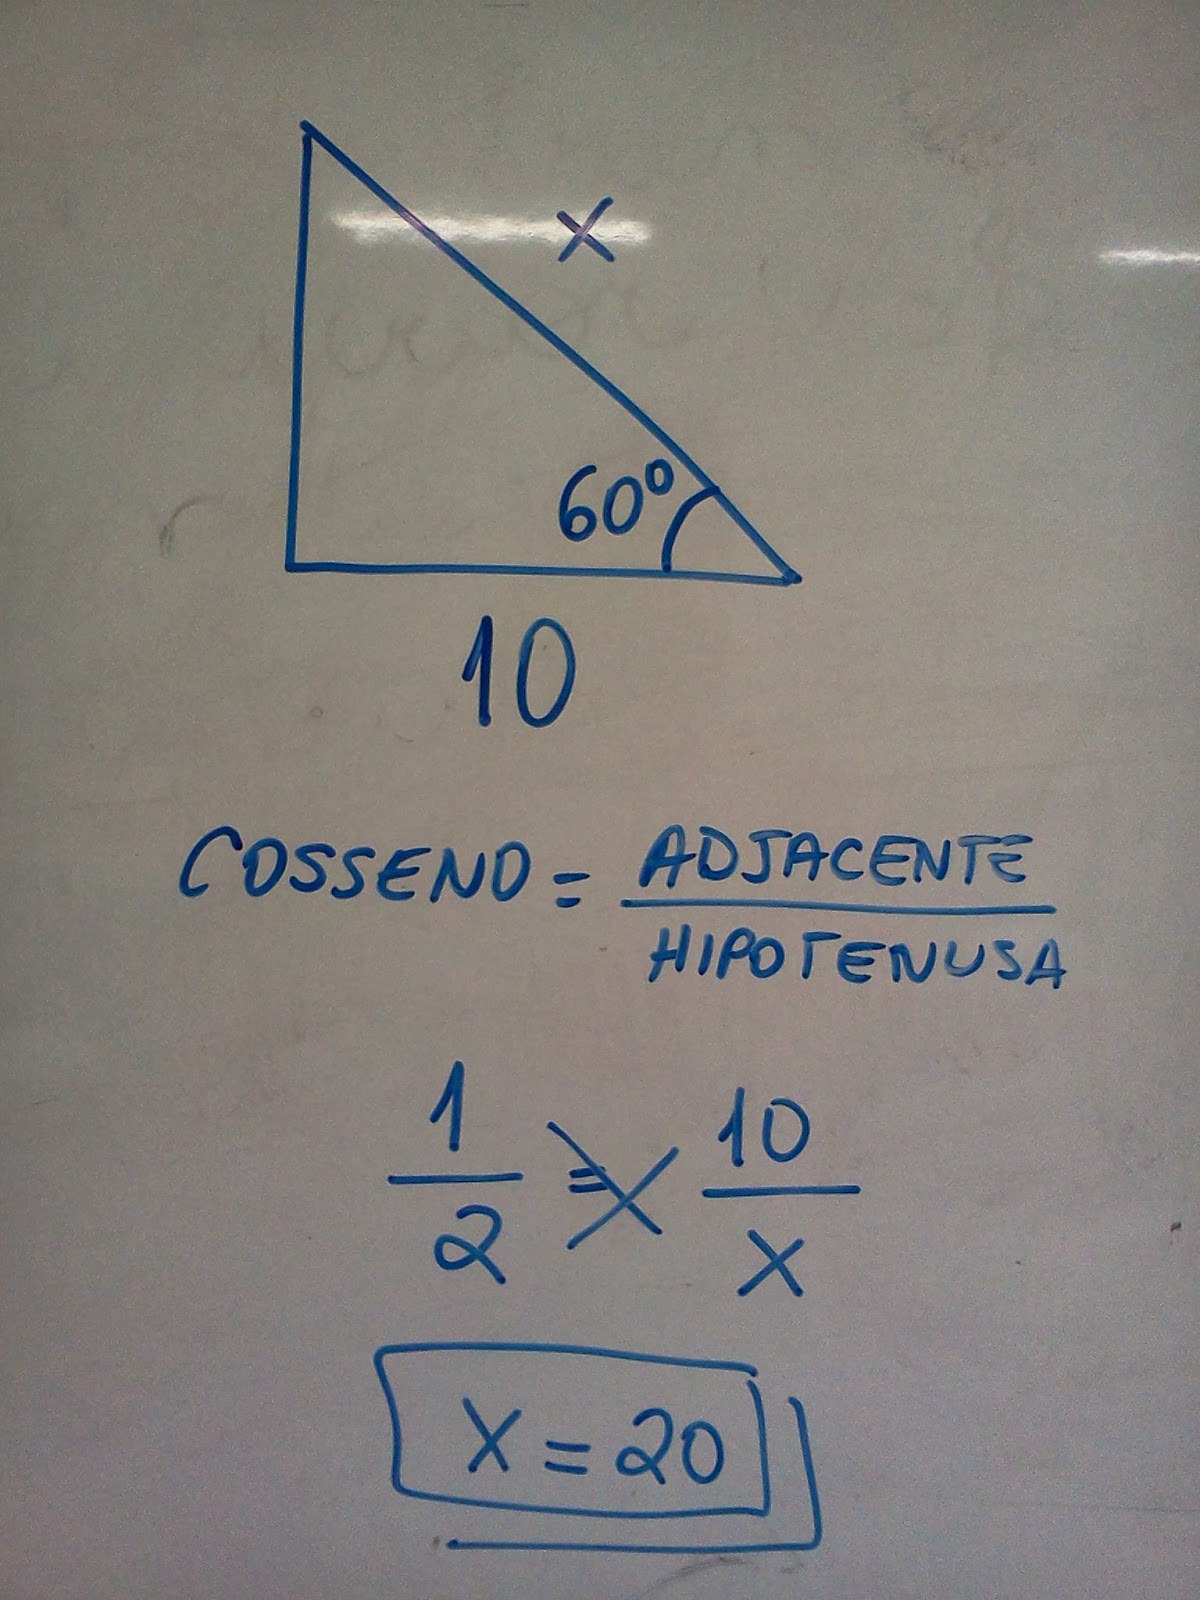 x
60°
10
COSSENO = ADJACENTE
HIPOTENUSA
1 = 10
2 x
x = 20